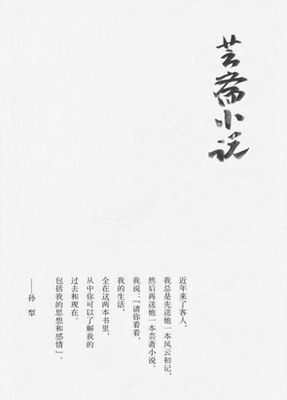 芸斋小说
近年来了客人，
我总是先送他一本风云初记，
然后再送他一本芸斋小说。
我说：“请你看看，
我的生活，
全在这两本书里，
从中你可以了解我的
过去和现在。
包括我的思想和感情”。
——孙犁